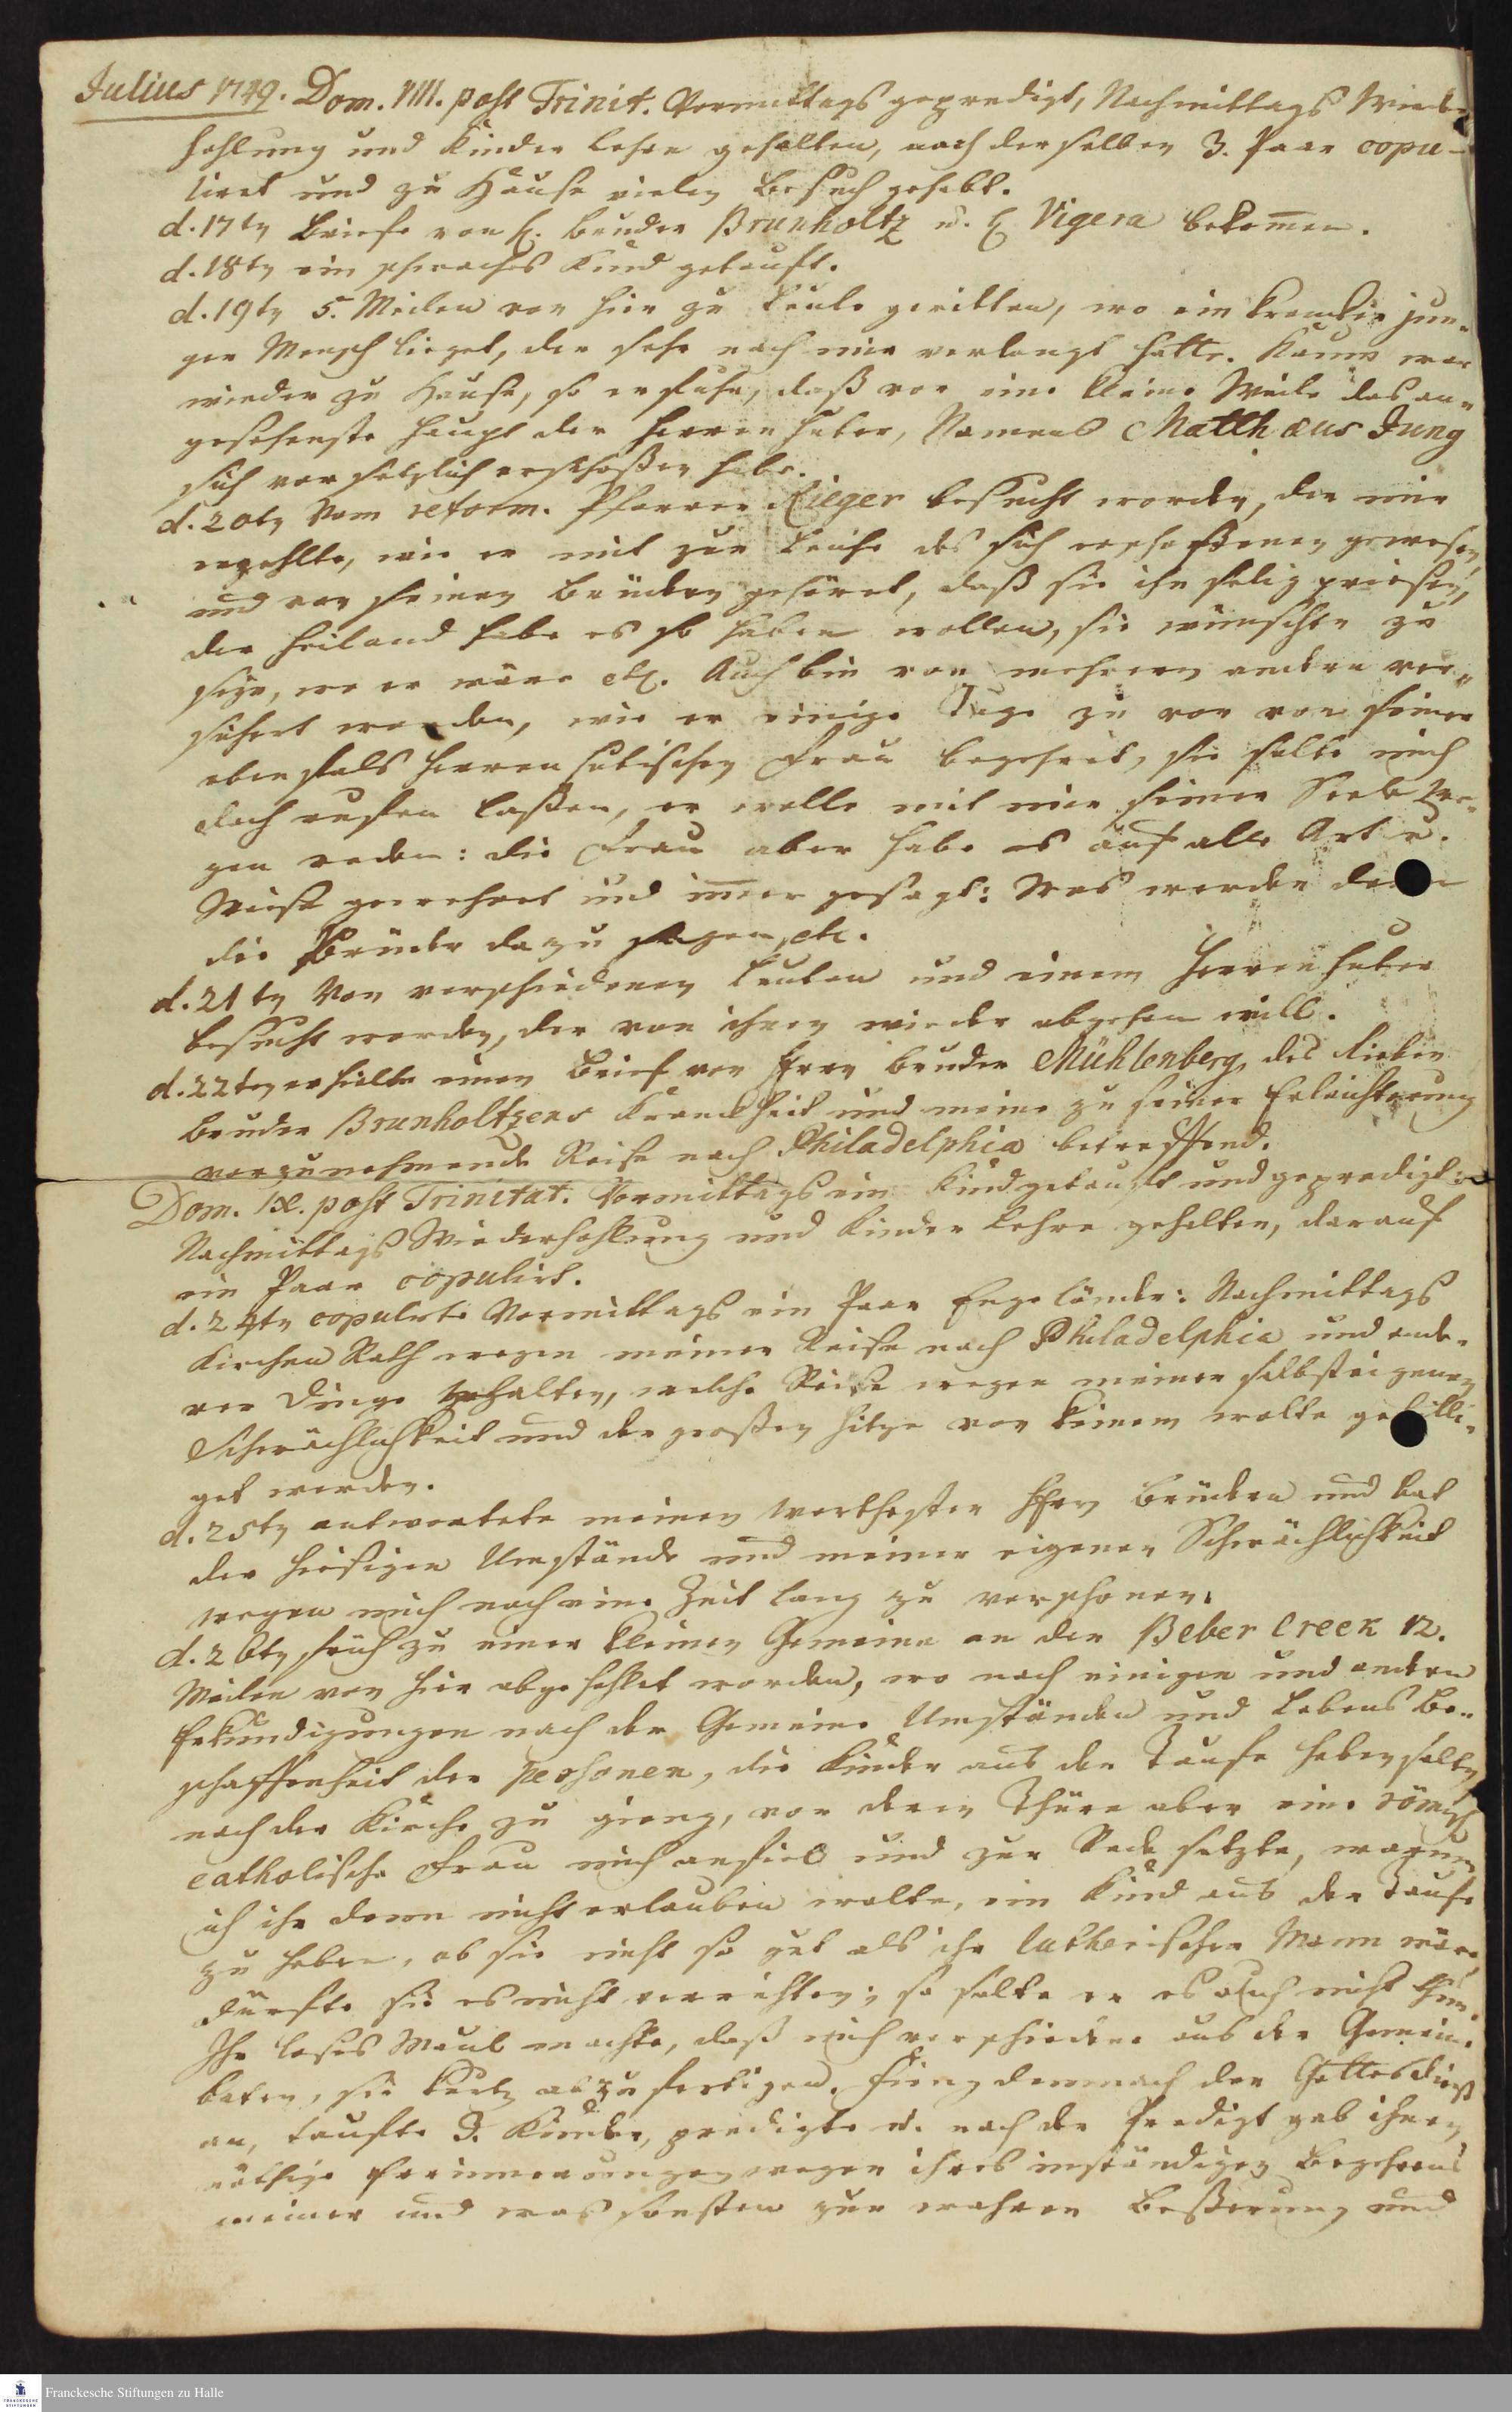 Julius 1749. Dom. VIII. post Trinit. Vormittags gepredigt, Nachmittags Wieder
hohlung und Kinder Lehre gehalten, nach derselben 3. Paar copu-
liret und zu Hause vielen Besuch gehabt.
d. 17tn Briefe von H. Bruder Brunholtz u. H Vigera bekomen.
d. 18tn ein schwaches Kind getauft.
d. 19tn 5. Meilen von hier zu Leute geritten, wo ein krancker jun-
ger Mensch lieget, der sehr nach mir verlangt hatte. Kaum war
wieder zu Hause, so erfuhr, daß vor eine kleine Weile das an-
gesehenste Haupt der Herrenhuter, Namens Matthæus Jung
sich vorsetzlich erschoßen habe.
d. 20tn Vom reform. Pfarrer Rieger besucht worden, der mir
erzehlte, wie er mit zur Leiche des sich erschoßenen gewesen,
und von seinen Brüdern gehöret, daß sie ihn selig priesen,
der Heiland habe es so haben wollen, sie wünschten zu
seyn, wo er wäre etc. Auch bin von mehrern andern ver-
sichert worden, wie er einige Tage zu vor von seiner
ebenfals herrenhutischen Frau begehret, sie solte mich
doch rufen laßen, er wolle mit mir seiner Seele we-
gen reden: die Frau aber habe es auf alle Art u.
Weise gewehret und imer gesagt: Was werden denn
die Brüder dazu sagen, etc.
d. 21tn Von verschiedenen Leuten und einem Herrenhuter
besucht worden, der von ihnen wieder abgehen will.
d. 22tn erhielte einen Brief von Herrn Bruder Mühlenberg, des lieben
Bruder Brunholtzens Kranckheit und meine zu seiner Erleichterung
vorzunehmende Reise nach Philadelphia betreffend.
Dom. IX. post Trinitat. Vormittags ein Kind getauft und gepredigt:
Nachmittags Wiederhohlung und Kinder Lehre gehalten, darauf
ein Paar copulirt.
d. 24tn copulirte Vormittags ein Paar Engeländer: Nachmittags
Kirchen Rath wegen meiner Reise nach Philadelphia und ande-
rer Dinge gehalten, welche Reise wegen meiner selbsteigenen
Schwächlichkeit und der großen Hitze von keinem wolte gebilli-
get werden.
d. 25tn antwortete meinen werthesten Herrn Brüdern und bat
der hiesigen Umstände und meiner eigenen Schwächlichkeit
wegen mich noch eine Zeit lang zu verschonen.
d. 26tn früh zu einer kleinen Gemeine an der Beber Creek 12.
Meilen von hier abgehohlet worden, wo nach einigen und andern
Erkundigungen nach der Gemeine Umständen und Lebens Be-
schaffenheit der Personen, die Kinder aus der Taufe heben solten
nach der Kirche zu gieng, vor deren Thüre aber eine römisch
catholische Frau mich anfiel und zur Rede setzte, warum
ich ihr denn nicht erlauben wolte, ein Kind aus der Taufe
zu heben, ob sie nicht so gut als ihr lutherischer Mann wäre,
dürfte sie es nicht verrichten; so solte er es auch nicht thun.
Ihr loses Maul machte, daß mich verschiedene aus der Gemeine
baten, sie kurtz abzufertigen. Fieng demnach den Gottesdienst
an, taufte 3. Kinder, predigte u. nach der Predigt gab ihnen
nöthige Erinnerungen wegen ihres inständigen Begehrens
meiner und was sonsten zur wahren Beßerung und
Franckesche Stiftungen zu Halle